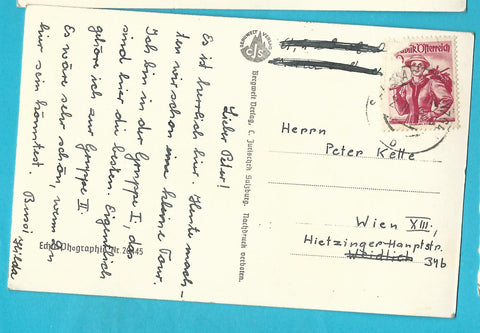 Lieber Peter!
Es ist herrlich hier. Heute mach-
ten wir schon eine kleine Tour.
Ich bin in der Gruppe I, das
sind hier die besten. Eigentlich
gehöre ich zur Gruppe II.
Es wäre sehr schön, wenn Du
hier sein könntest. Bussi
Hilda
Echte Photographie Nr. 20145
BERGWELT VERLAG
CJS
Bergwelt Verlag C. Jurischek Salzburg. Nachdruck verboten.
Republik Österreich
Herrn
Peter Kötte
Wien XIII,
Hietzinger-Hauptstr.
34b